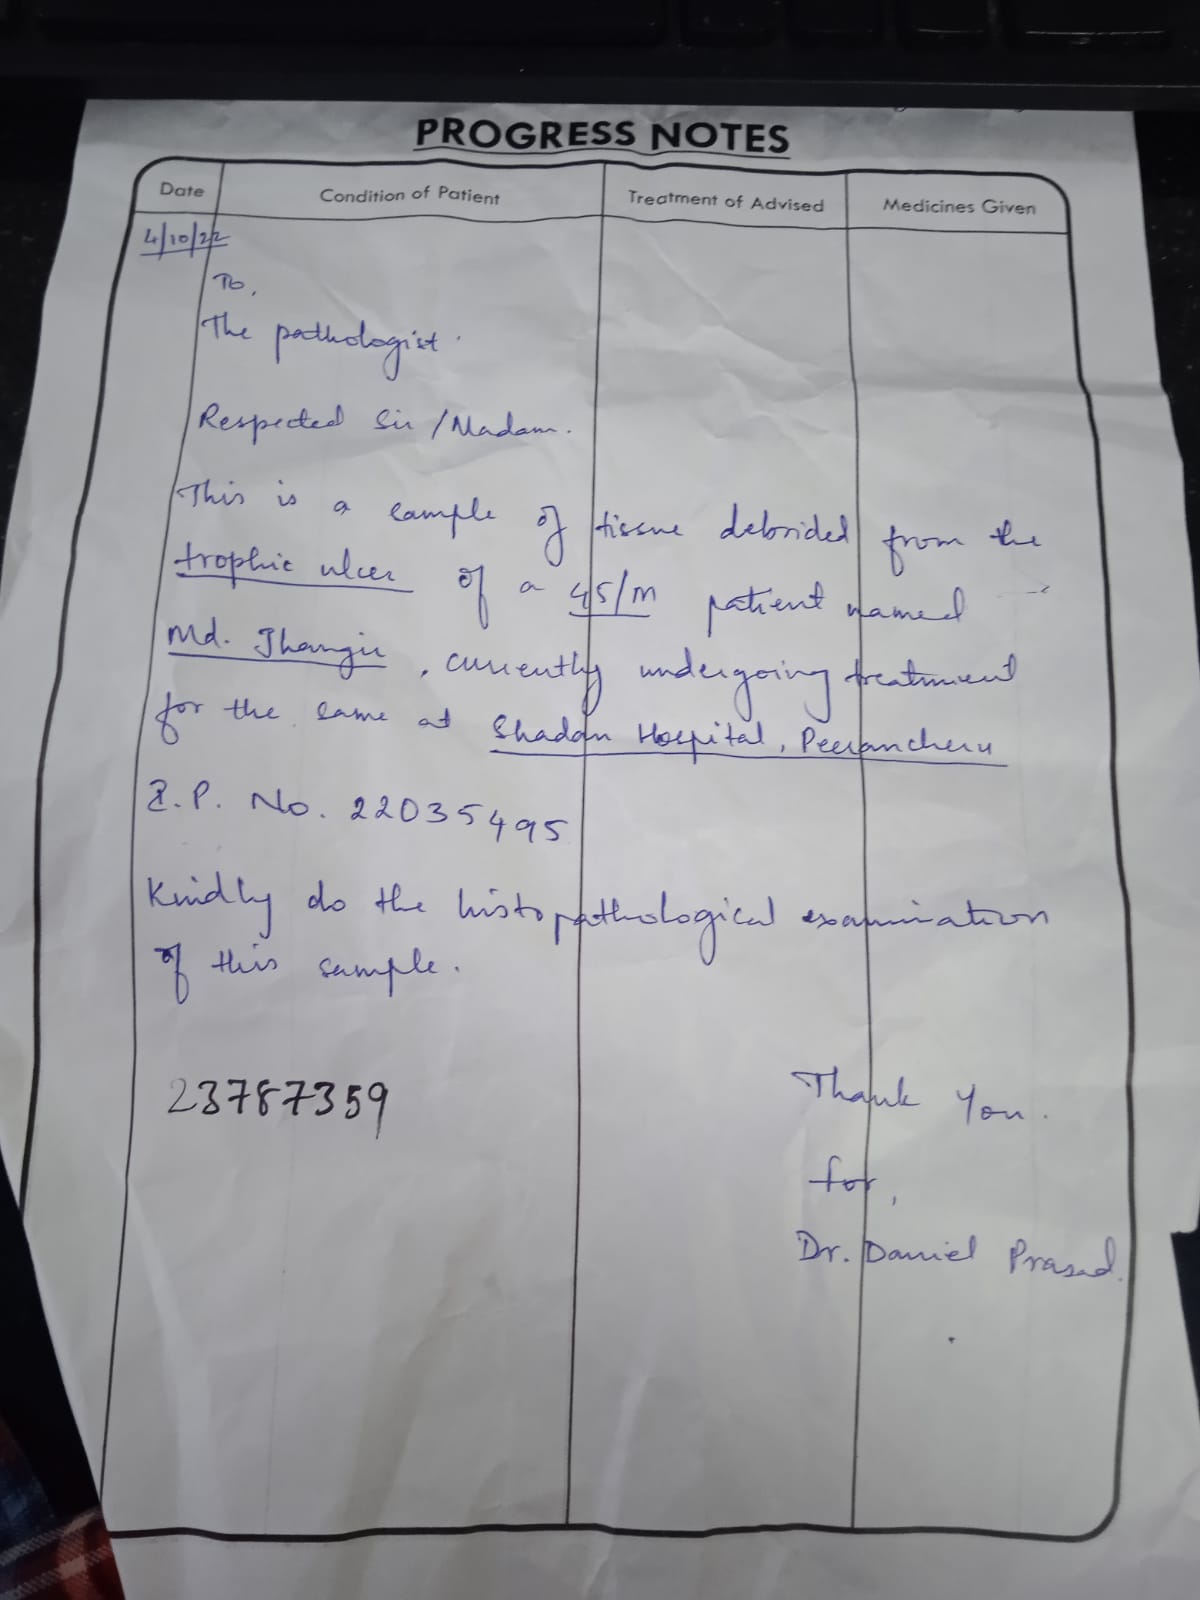 PROGRESS NOTES
Date Condition of Patient Treatment of Advised Medicines Given
4/10/22
To,
The pathologist.
Respected Sir/Madam.
This is a sample of tissue debrided from the
trophic ulcer of a 45/M patient named
Md. Jhangir, currently undergoing treatment
for the same at Shadan Hospital, Peerancheru
I.P. No. 22035495
Kindly do the histopathological examination
of this sample.
23787359
Thank You.
for,
Dr. Daniel Prasad.